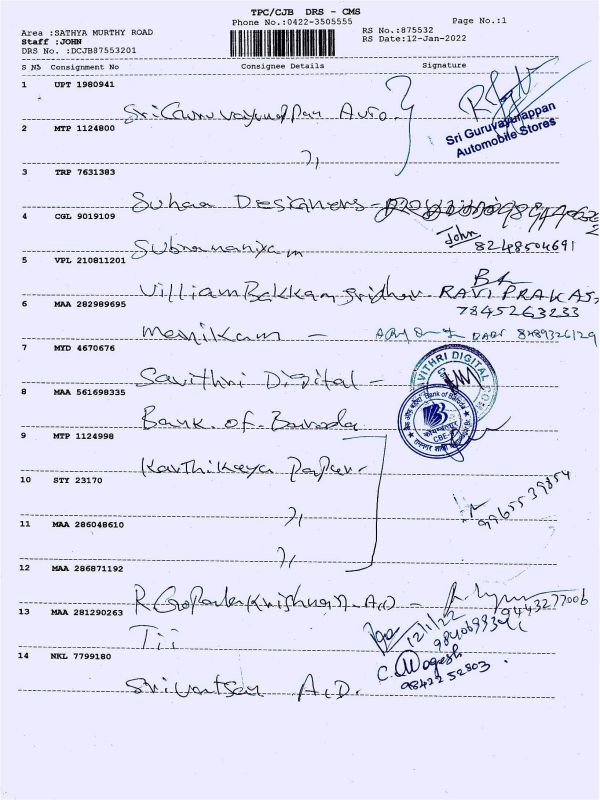 TPC/CJB DRS - CMS
Phone No.:0422-3505555
Page No.:1
Area :SATHYA MURTHY ROAD
Staff :JOHN
DRS No. :DCJB87553201
RS No.:875532
RS Date:12-Jan-2022
S No Consignment No Consignee Details Signature
1 UPT 1980941
Sri Guruvayurppan Auto.
Sri Guruvayurappan
Automobile Stores
2 MTP 1124800
"
3 TRP 7631383
Suhaa Designers -
4 CGL 9019109
Subramaniyam
John
8248504691
5 VPL 210811201
Villiam Bakkam Sridher - RAVI PRAKAS
7845263233
6 MAA 282989695
Manikam -
7 MYD 4670676
Savithri Digital -
VITHRI DIGITAL
8 MAA 561698335
Bank of Baroda
Bank of Baroda
9 MTP 1124998
Karthikeya Papers
10 STY 23170
"
9965539854
11 MAA 286048610
"
12 MAA 286871192
R. Gopalakrishnan. A.D -
9443277006
13 MAA 281290263
Tii
12/1/22
14 NKL 7799180
C. Wogesh
9842252803.
Srivatsen A.D.